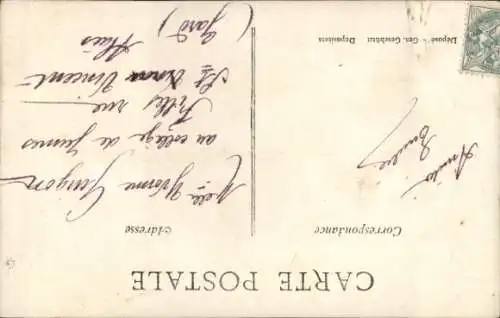 CARTE POSTALE
Correspondance
Adresse
Amitiés
Emilie
Melle Yvonne Guigon
au collège de jeunes
filles rue
St Vincent
Alais
(Gard)
Déposé - Ges. Geschützt
Deposiert